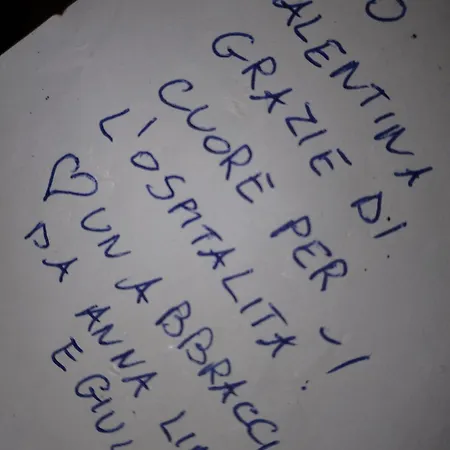 O
ALENTINA
GRAZIE DI
CUORE PER
L'OSPITALITA'!
♡ UN ABBRACCI
DA ANNA LI
E GIUL